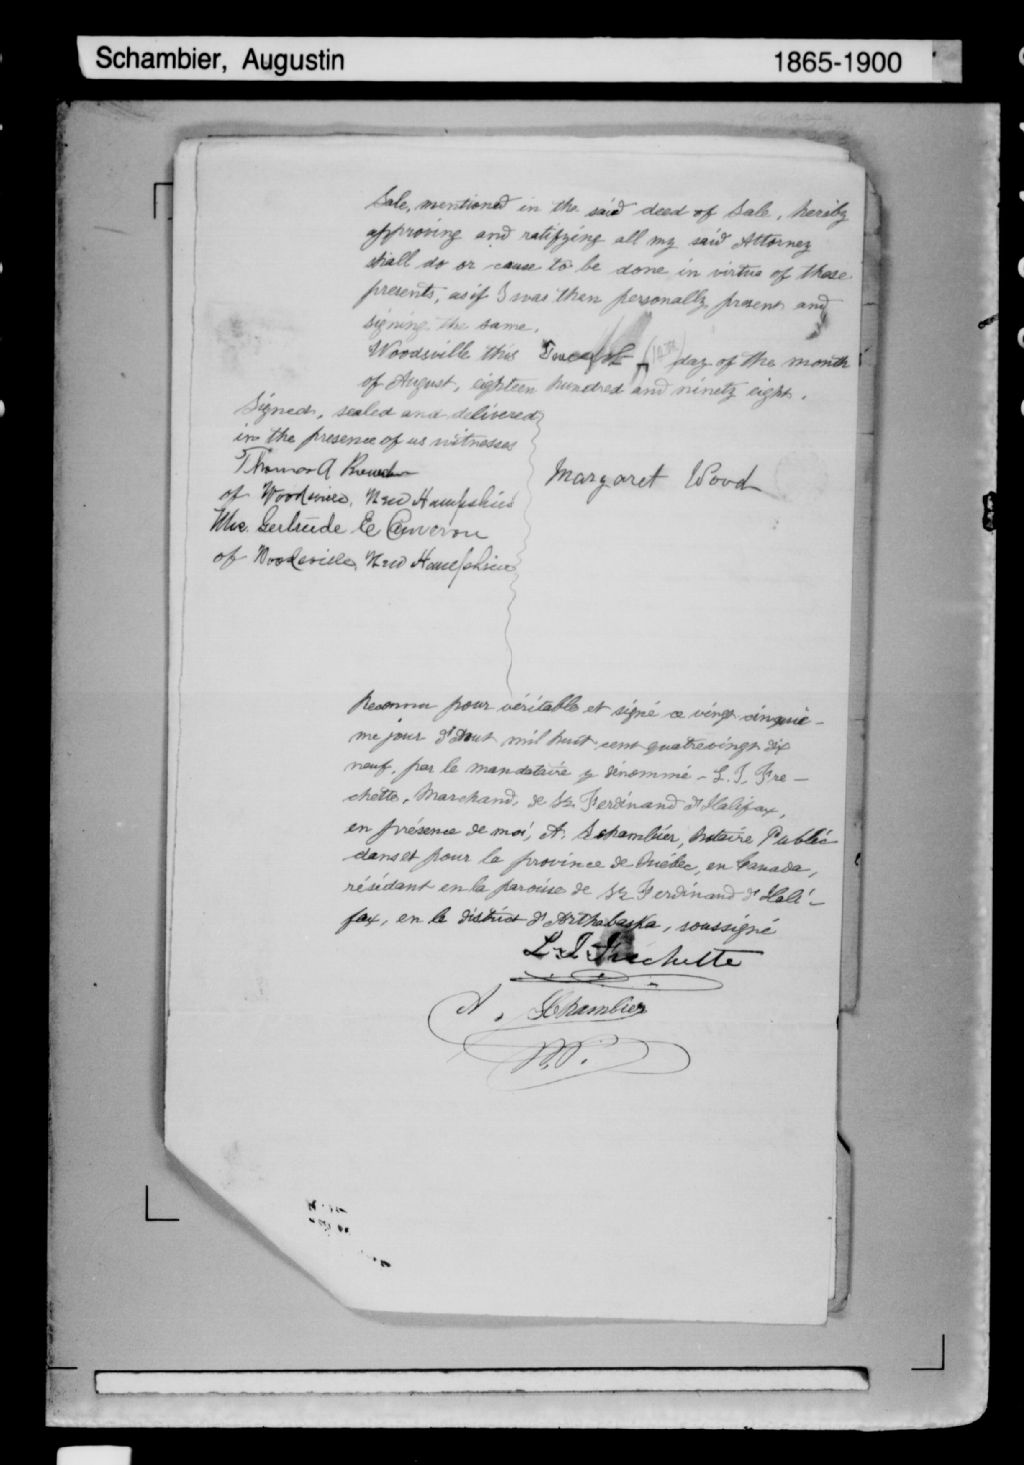 Schambier, Augustin 1865-1900
Sale, mentioned in the said deed of Sale, hereby
approving and ratifying all my said Attorney
shall do or cause to be done in virtue of these
presents, as if I was then personally present and
signing the same.
Woodsville this Twelfth (12th) day of the month
of August, eighteen hundred and ninety eight.
Signed, sealed and delivered
in the presence of us witnesses
Thomas A
of Woodsville, New Hampshire
Margaret Wood
Mrs. Gertrude E Cameron
of Woodsville, New Hampshire
Reconnu pour véritable et signé ce vingt cinquiè-
me jour d'Aout mil huit cent quatrevingt dix
neuf, par le mandataire y dénommé - L. J. Fre-
chette, Marchand, de St Ferdinand d'Halifax,
en présence de moi, A. Schambier, Notaire Public
dans et pour la province de Québec, en Canada,
résidant en la paroisse de St Ferdinand d'Hali-
fax, en le district d'Arthabaska, soussigné
L. J. Frechette
A. Schambier
N.P.